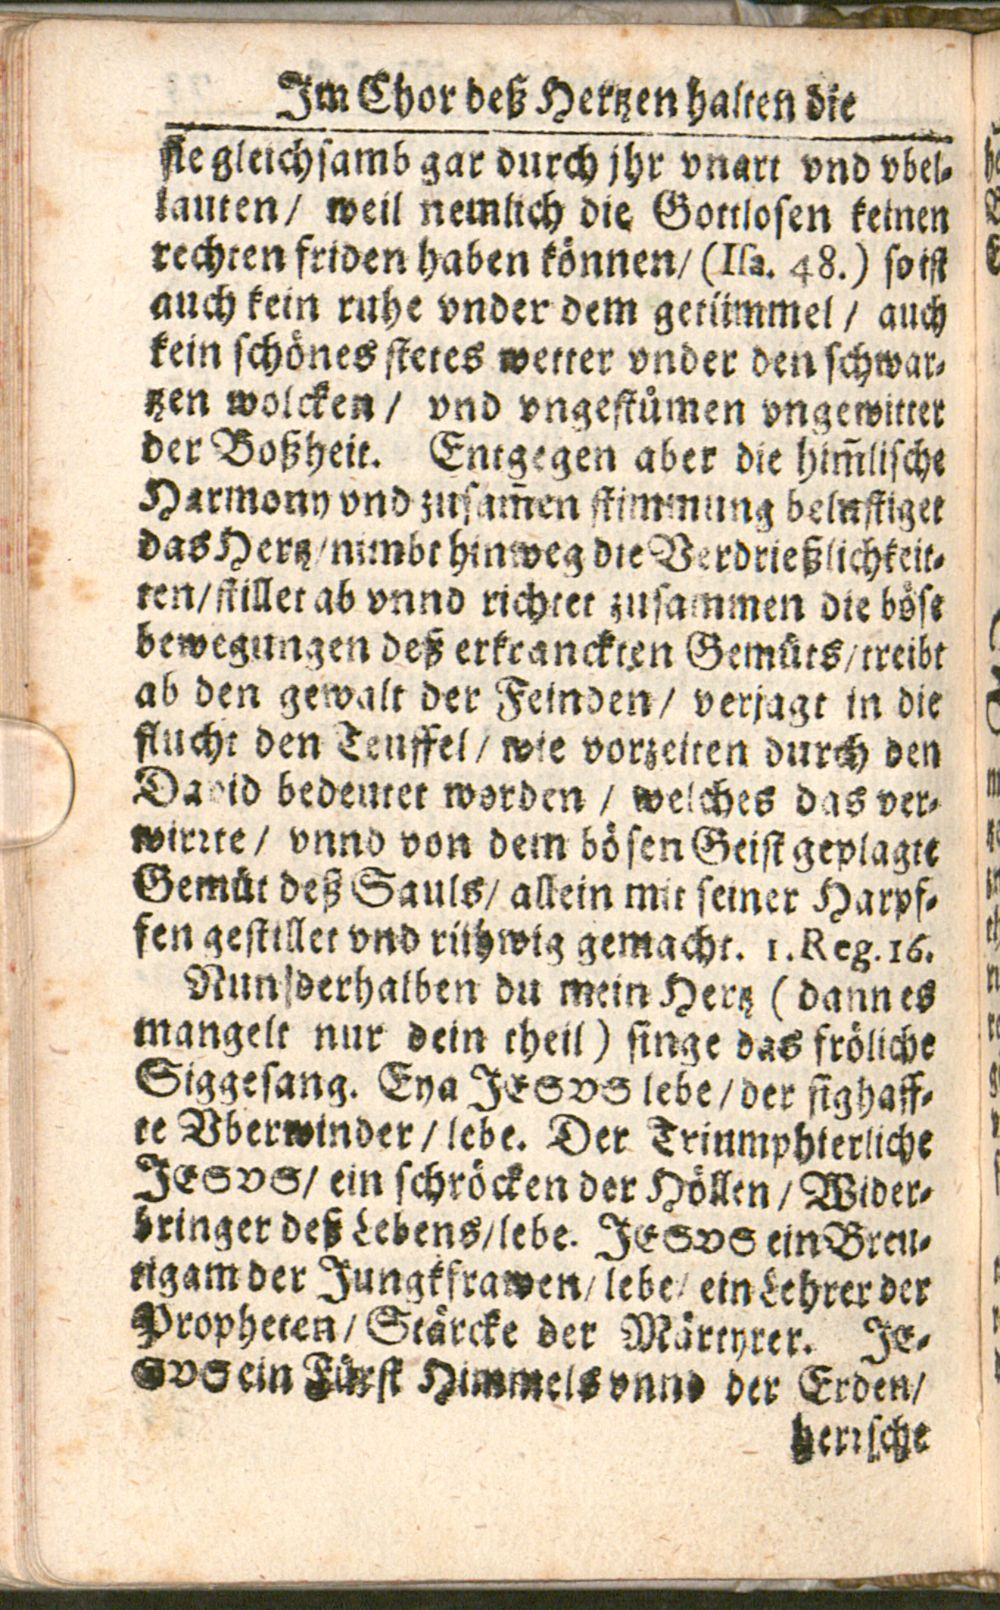 Im Chor deß Hertzen halten die
sie gleichsamb gar durch jhr vnart vnd vbel-
lauten / weil nemlich die Gottlosen keinen
rechten friden haben können / (Isa. 48.) so ist
auch kein ruhe vnder dem getümmel / auch
kein schönes stetes wetter vnder den schwar-
tzen wolcken / vnd vngestümen vngewitter
der Boßheit. Entgegen aber die him̃lische
Harmony vnd zusam̃en stimmung belustiget
das Hertz / nimbt hinweg die Verdrießlichkeit-
ten / stillet ab vnnd richtet zusammen die böse
bewegungen deß erkranckten Gemüts / treibt
ab den gewalt der Feinden / verjagt in die
flucht den Teuffel / wie vorzeiten durch den
David bedeutet worden / welches das ver-
wirrte / vnnd von dem bösen Geist geplagte
Gemüt deß Sauls / allein mit seiner Harpf-
fen gestillet vnd rühwig gemacht. 1. Reg. 16.
Nun derhalben du mein Hertz ( dann es
mangelt nur dein theil ) singe das fröliche
Siggesang. Eya JESVS lebe / der sighaff-
te Vberwinder / lebe. Der Triumphierliche
JESVS / ein schröcken der Höllen / Wider-
bringer deß Lebens / lebe. JESVS ein Breu-
tigam der Jungkfrawen / lebe / ein Lehrer der
Propheten / Stärcke der Märtyrer. JE-
SVS ein Fürst Himmels vnnd der Erden /
herrsche